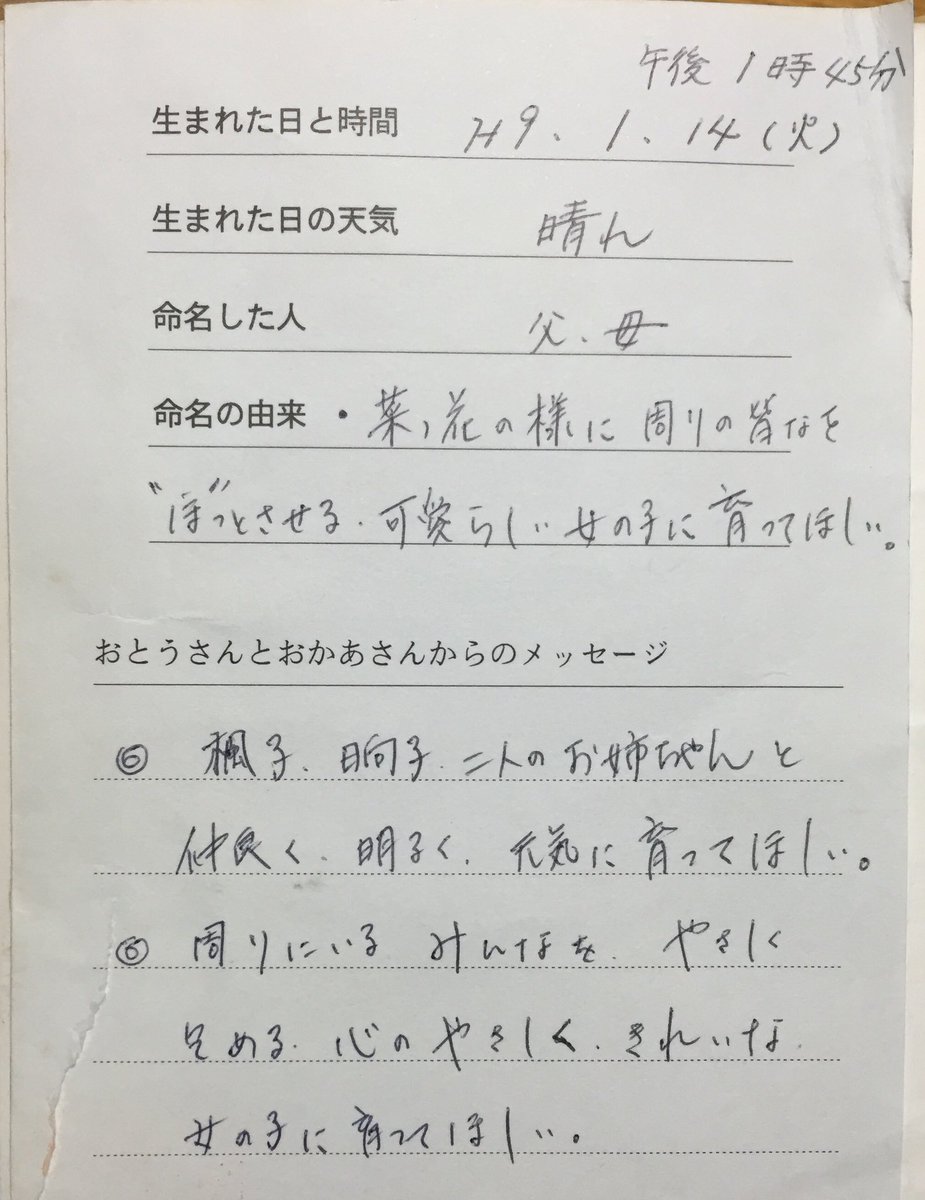 午後 1時45分
生まれた日と時間 H9. 1. 14(火)
生まれた日の天気 晴れ
命名した人 父、母
命名の由来 ・菜ノ花の様に周りの皆なを
“ほ”っとさせる、可愛らしい女の子に育ってほしい。
おとうさんとおかあさんからのメッセージ
楓子、日向子、二人のお姉ちゃんと
仲良く、明るく、元気に育ってほしい。
周りにいるみんなを、やさしく
見める、心のやさしく、きれいな
女の子に育ってほしい。